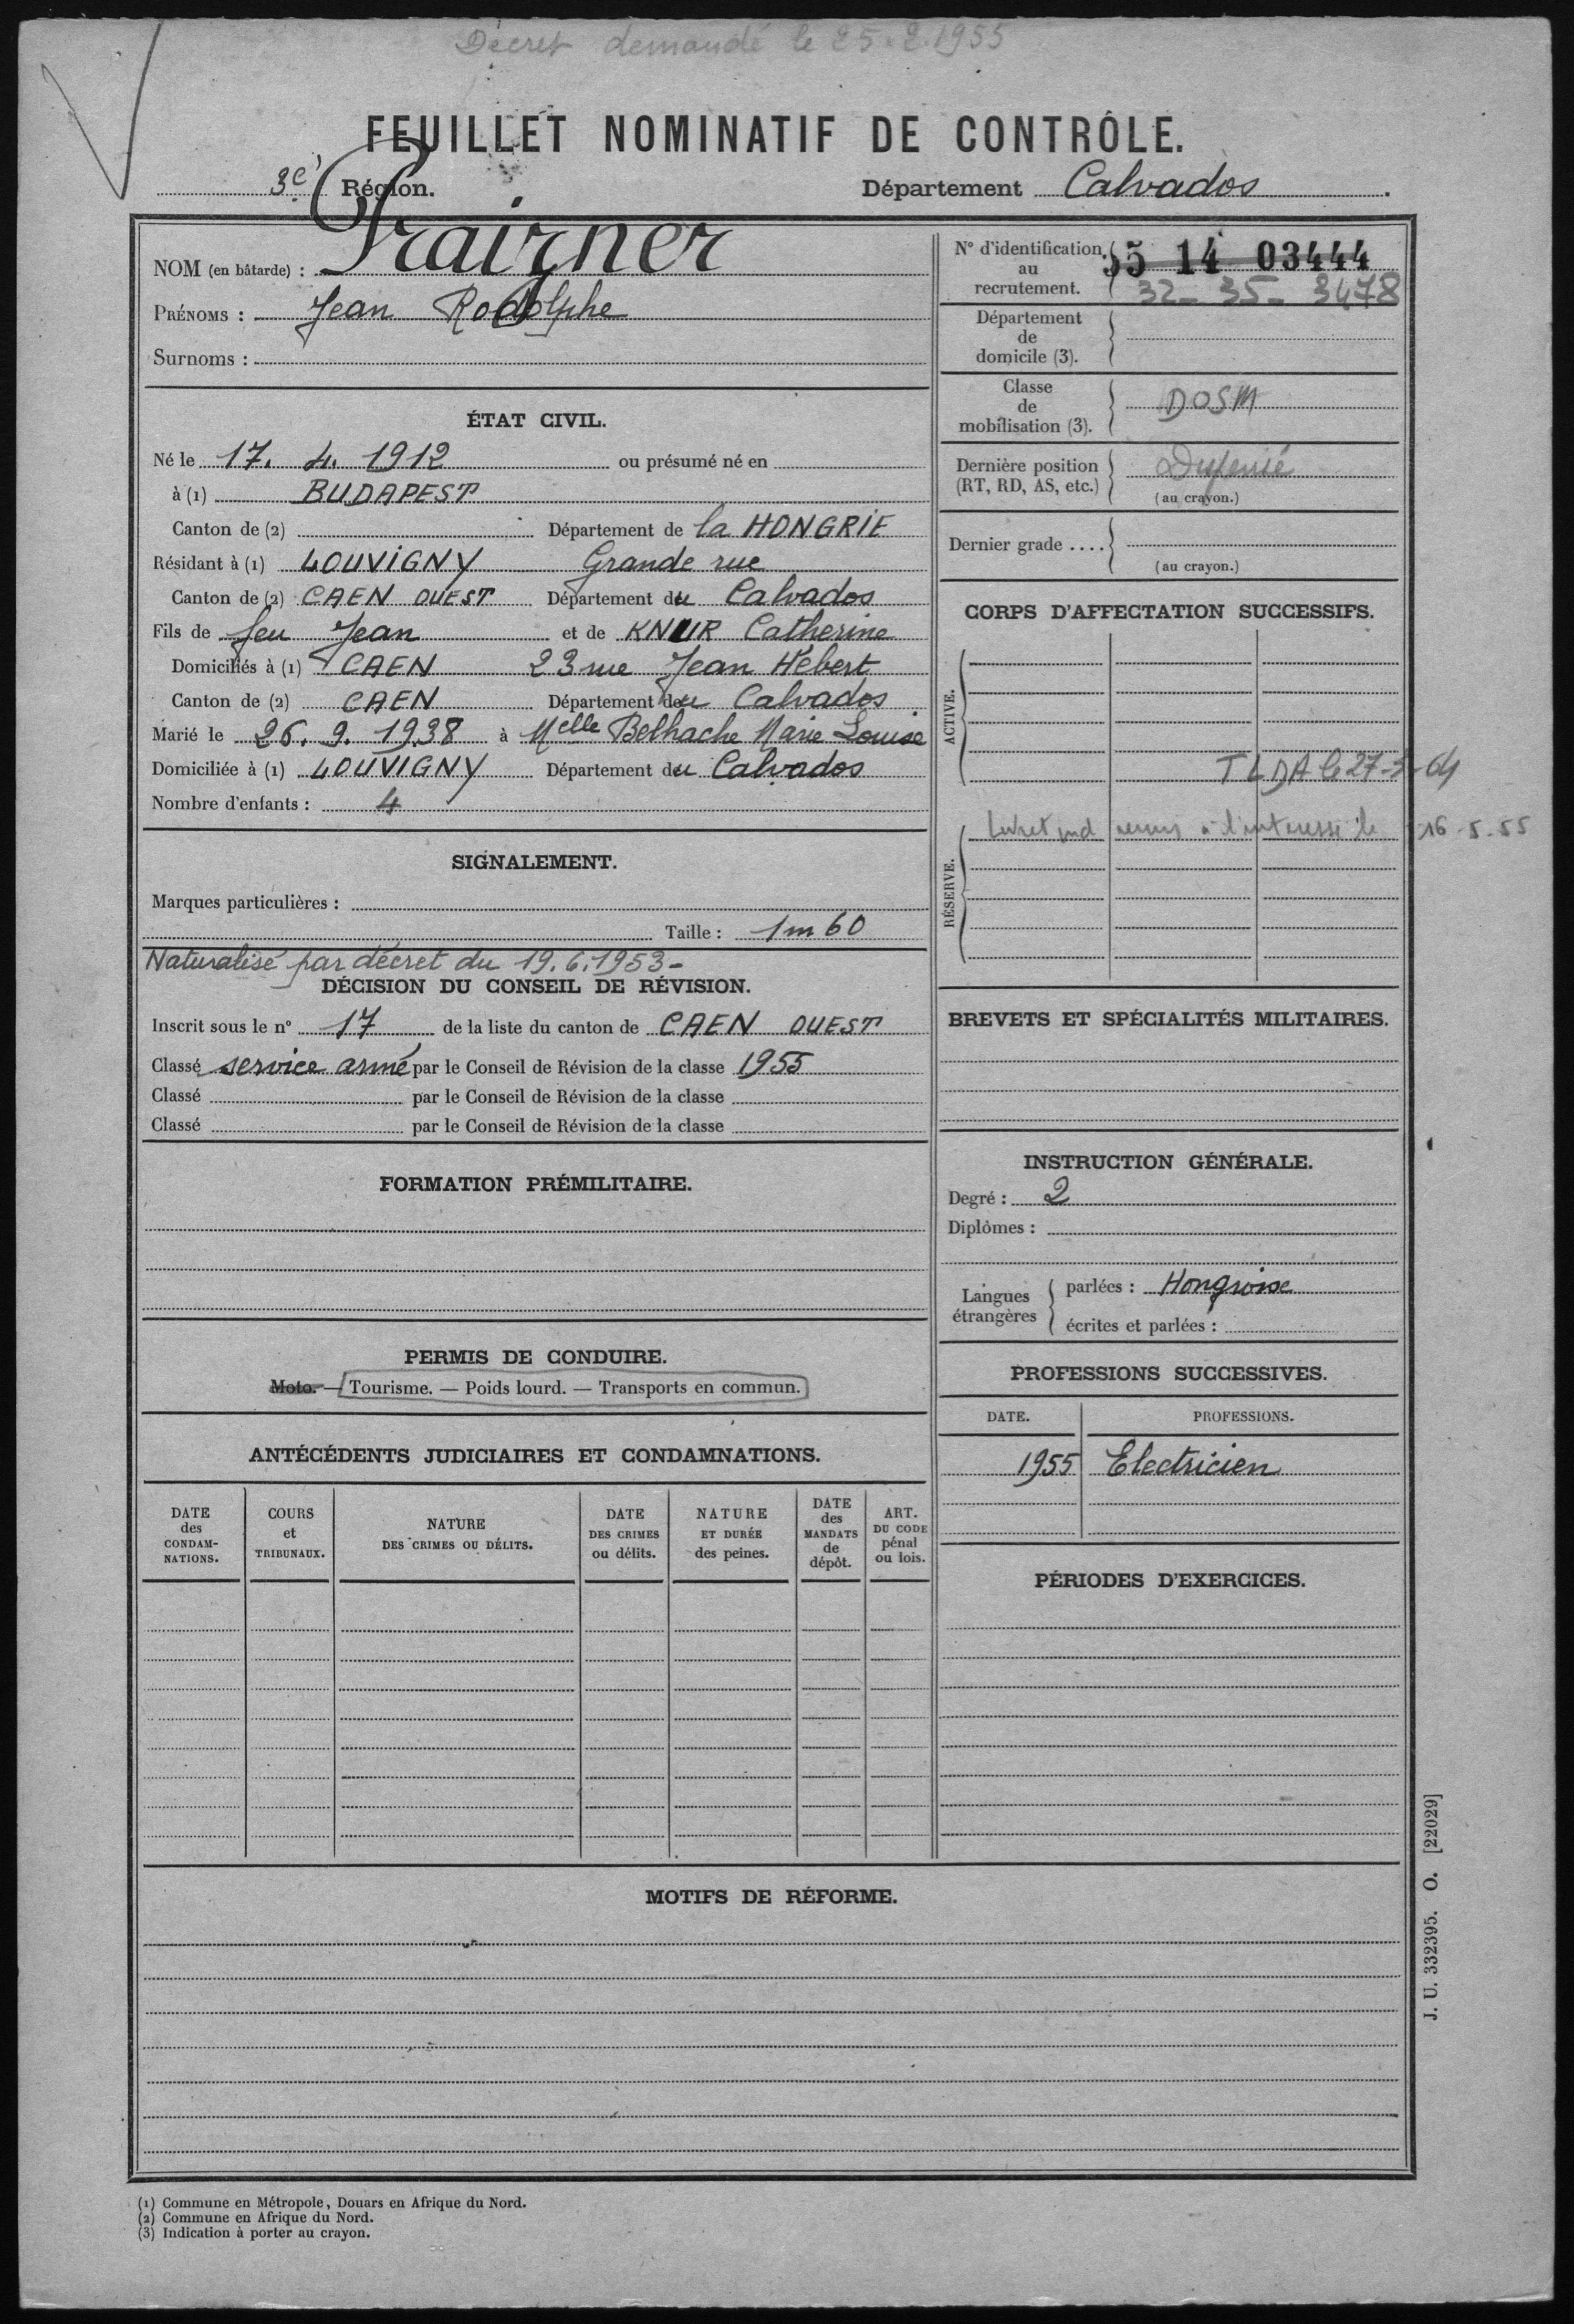 Décret demandé le 25.2.1955
FEUILLET NOMINATIF DE CONTRÔLE.
3e Région.
Département Calvados.
NOM (en bâtarde) : Praizner
PRÉNOMS : Jean Rodolphe
Surnoms :
ÉTAT CIVIL.
Né le 17. 4. 1912 ou présumé né en
à (1) BUDAPEST
Canton de (2) Département de la HONGRIE
Résidant à (1) LOUVIGNY Grande rue
Canton de (2) CAEN OUEST Département du Calvados
Fils de feu Jean et de KNUR Catherine
Domiciliés à (1) CAEN 23 rue Jean Hébert
Canton de (2) CAEN Département du Calvados
Marié le 26. 9. 1938 à Melle Belhache Marie Louise
Domiciliée à (1) LOUVIGNY Département du Calvados
Nombre d'enfants : 4
SIGNALEMENT.
Marques particulières :
Taille : 1m 60
Naturalisé par décret du 19.6.1953-
DÉCISION DU CONSEIL DE RÉVISION.
Inscrit sous le n° 17 de la liste du canton de CAEN OUEST
Classé service armé par le Conseil de Révision de la classe 1955
Classé par le Conseil de Révision de la classe
Classé par le Conseil de Révision de la classe
FORMATION PRÉMILITAIRE.
PERMIS DE CONDUIRE.
Moto. — Tourisme. — Poids lourd. — Transports en commun.
ANTÉCÉDENTS JUDICIAIRES ET CONDAMNATIONS.
DATE des CONDAM-NATIONS.
COURS et TRIBUNAUX.
NATURE DES CRIMES OU DÉLITS.
DATE DES CRIMES ou délits.
NATURE ET DURÉE des peines.
DATE des MANDATS de dépôt.
ART. DU CODE pénal ou lois.
N° d'identification au recrutement. 55 14 03444
32- 35- 3478
Département de domicile (3).
Classe de mobilisation (3). DOSM
Dernière position (RT, RD, AS, etc.)
(au crayon.)
Dernier grade ....
(au crayon.)
CORPS D'AFFECTATION SUCCESSIFS.
ACTIVE.
TLDA le 27-5-64
RÉSERVE.
Livret ind remis à l'intéressé le 16-5-55
BREVETS ET SPÉCIALITÉS MILITAIRES.
INSTRUCTION GÉNÉRALE.
Degré : 2
Diplômes :
Langues étrangères
parlées : Hongroise
écrites et parlées :
PROFESSIONS SUCCESSIVES.
DATE. PROFESSIONS.
1955 Electricien
PÉRIODES D'EXERCICES.
MOTIFS DE RÉFORME.
J. U. 332395. O. [22029]
(1) Commune en Métropole, Douars en Afrique du Nord.
(2) Commune en Afrique du Nord.
(3) Indication à porter au crayon.